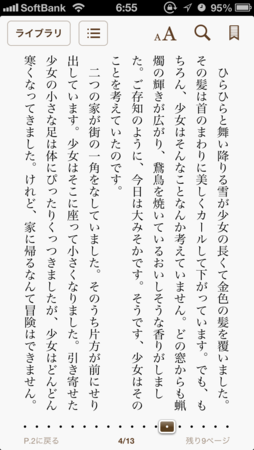 SoftBank 6:55 95%
ライブラリ
AA
ひらひらと舞い降りる雪が少女の長くて金色の髪を覆いました。
その髪は首のまわりに美しくカールして下がっています。でも、も
ちろん、少女はそんなことなんか考えていません。どの窓からも蝋
燭の輝きが広がり、鵞鳥を焼いているおいしそうな香りがしまし
た。ご存知のように、今日は大みそかです。そうです、少女はその
ことを考えていたのです。
二つの家が街の一角をなしていました。そのうち片方が前にせり
出しています。少女はそこに座って小さくなりました。引き寄せた
少女の小さな足は体にぴったりくっつきましたが、少女はどんどん
寒くなってきました。けれど、家に帰るなんて冒険はできません。
P.2に戻る 4/13 残り9ページ